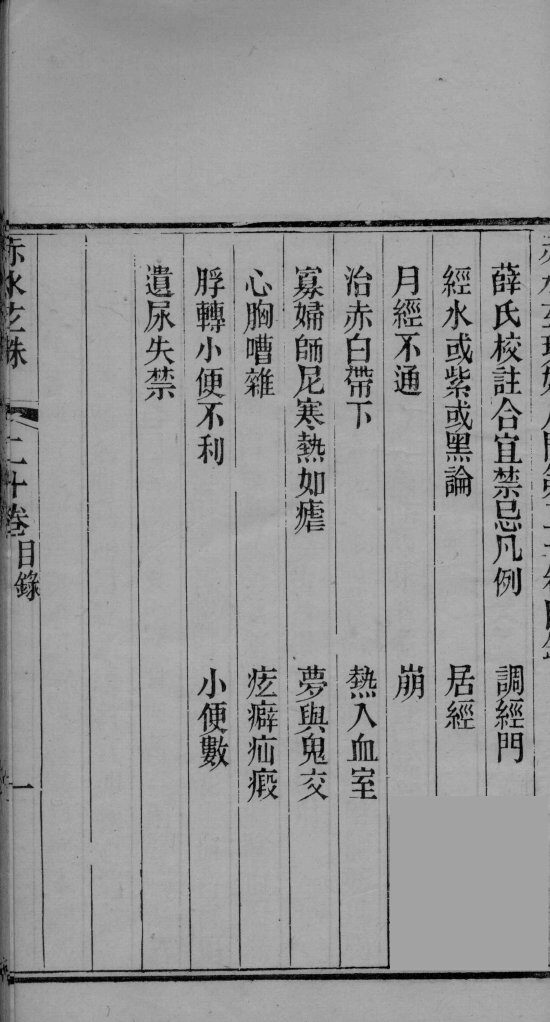 薛氏校註合宜禁忌凡例　調經門
經水或紫或黑論　居經
月經不通　崩
治赤白帶下　熱入血室
寡婦師尼寒熱如瘧　夢與鬼交
心胸嘈雜　痃癖疝瘕
脬轉小便不利　小便數
遺尿失禁
赤水玄珠　二十卷目錄　一